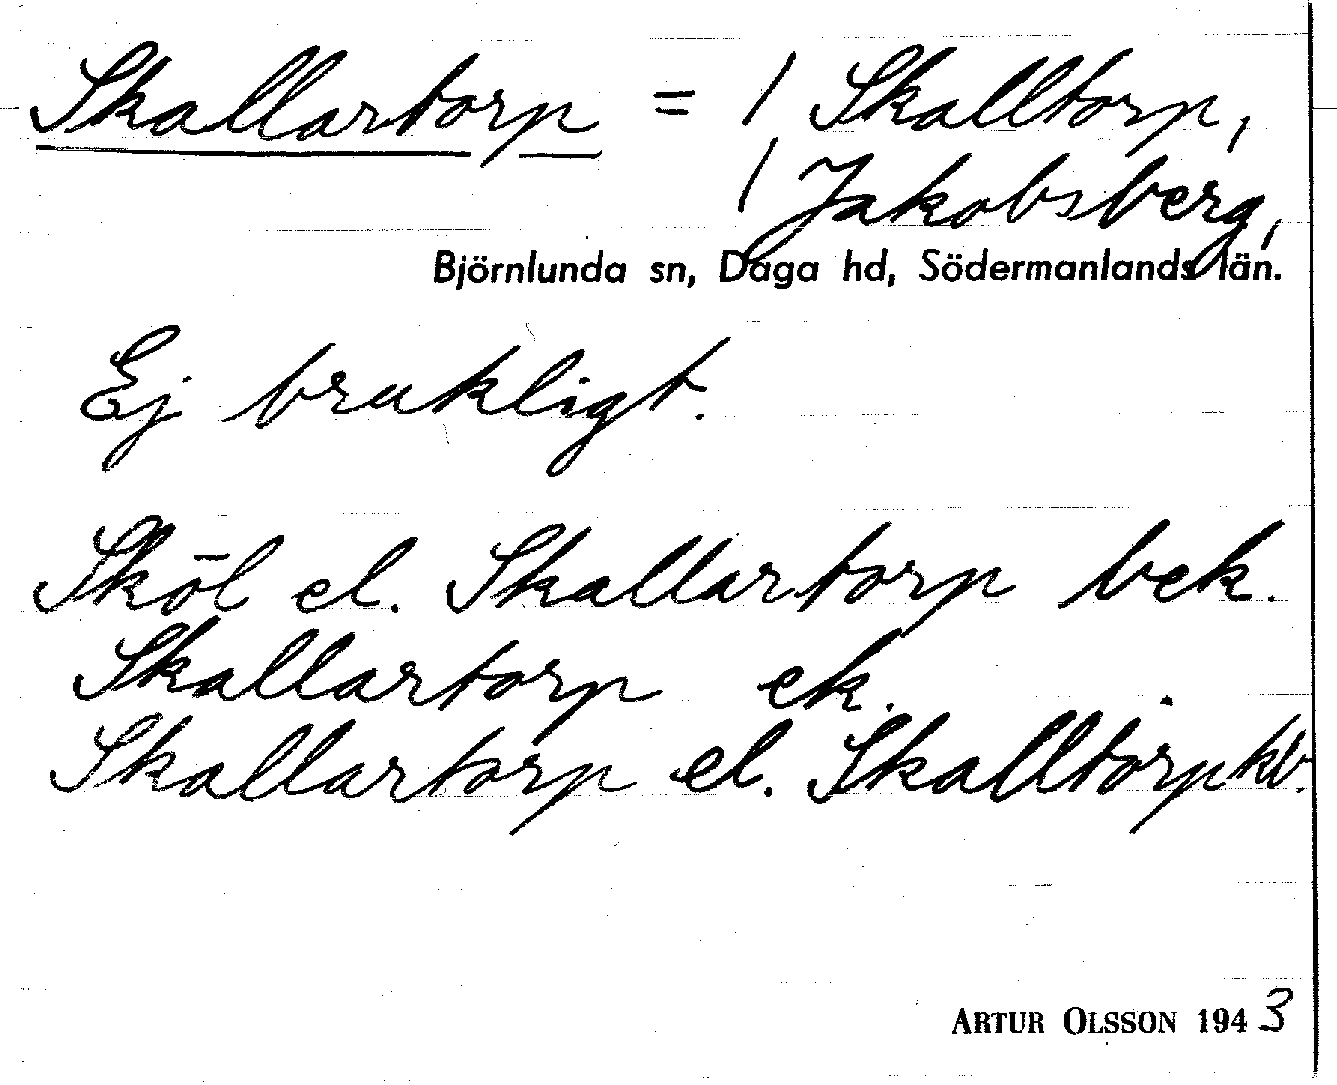 Skallartorp = / Skalltorp,
/ Jakobsberg,
Björnlunda sn, Daga hd, Södermanlands län.
Ej brukligt.
Sköl el. Skallartorp bek.
Skallartorp ek.
Skallartorp el. Skalltorp kv.
ARTUR OLSSON 1943